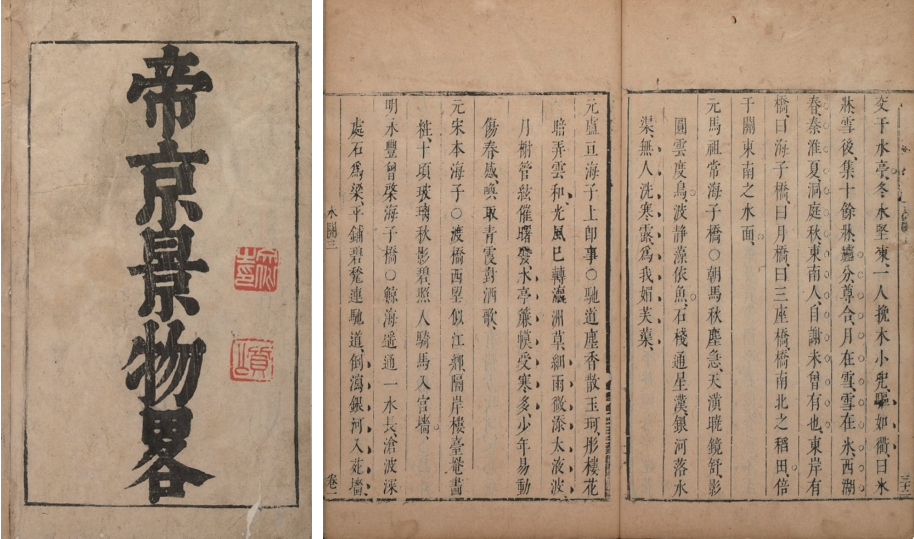 帝京景物畧
交于水亭、冬水堅凍、一人挽木小兜、驅如衢、曰氷
牀、雪後、集十餘牀、罏分尊合、月在雪、雪在氷、西湖
春、秦淮夏、洞庭秋、東南人、自謝未曾有也、東岸有
橋、曰海子橋、曰月橋、曰三座橋、橋南北之稻田、倍
于關東南之水面、
元馬祖常海子橋○朝馬秋塵急、天潢曉鏡舒、影
圓雲度鳥、波靜藻依魚、石棧通星漢、銀河落水
渠、無人洗寒露、爲我媚芙蕖、
元盧亘海子上卽事○馳道塵香散玉珂、彤樓花
暗弄雲和、光風已轉瀛洲草、細雨微添太液波、
月榭管絃催曙發、水亭簾幙受寒多、少年易動
傷春感、喚取青霞對酒歌、
元宋本海子○渡橋西望似江鄉、隔岸樓臺罨畫
粧、十頃玻璃秋影碧、照人騎馬入宮墻、
明永豐曾棨海子橋○鯨海遙通一水長、滄波深
處石爲梁、平鋪碧甃連馳道、倒瀉銀河入苑墻、
水關三
卷一